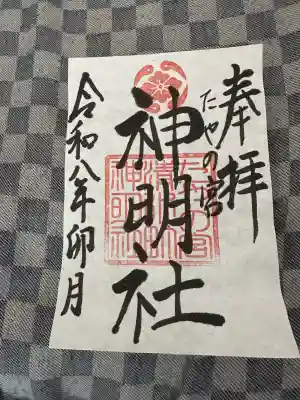 奉拝
たやの宮
神明社
令和八年卯月